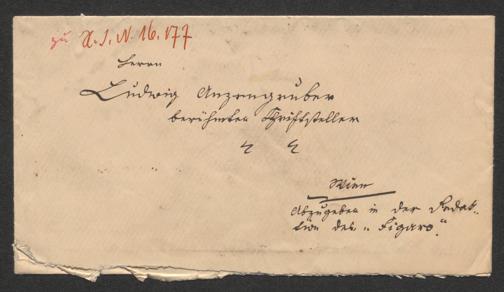 zu H.I.N. 16.177
Herrn
Ludwig Anzengruber
berühmten Schriftsteller
Wien
Abzugeben in der Redak-
tion des „Figaro“.